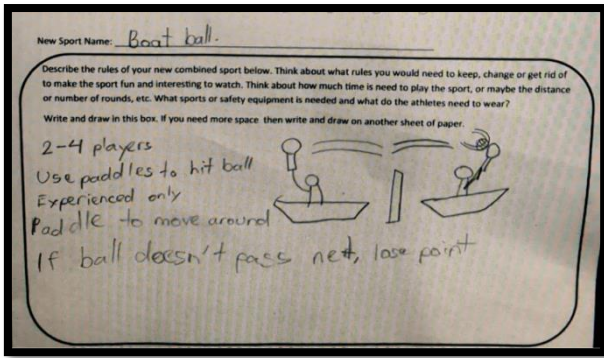 New Sport Name: Boat ball.
Describe the rules of your new combined sport below. Think about what rules you would need to keep, change or get rid of
to make the sport fun and interesting to watch. Think about how much time is need to play the sport, or maybe the distance
or number of rounds, etc. What sports or safety equipment is needed and what do the athletes need to wear?
Write and draw in this box. If you need more space then write and draw on another sheet of paper.
2-4 players
Use paddles to hit ball
Experienced only
Paddle to move around
If ball doesn't pass net, lose point